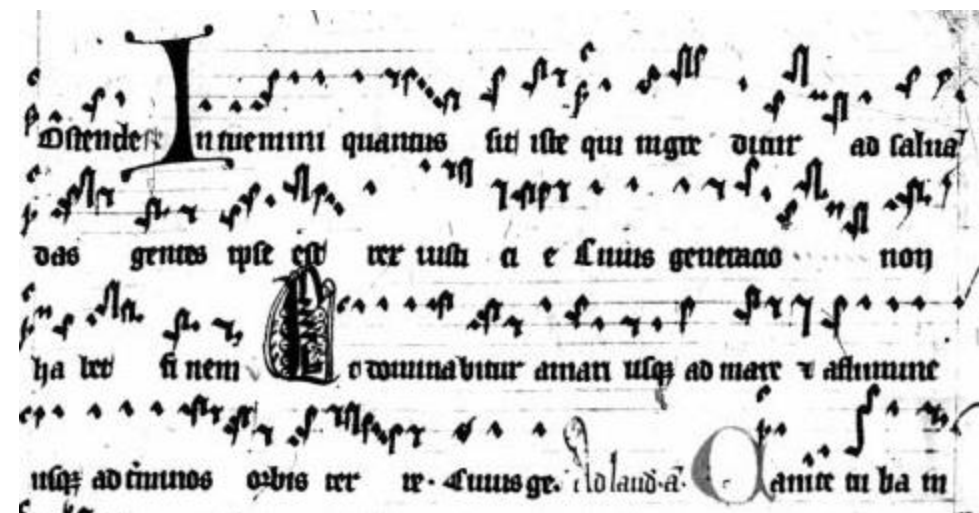 Ostende Intuemini quantus sit iste qui ingre ditur ad salua
das gentes ipse est rex iusti ci e Cuius generacio non
ha bet fi nem Et dominabitur amari usq ad mare et aflumine
usq ad tminos orbis ter re. Cuius ge. Ad laud. a. Canite tu ba in